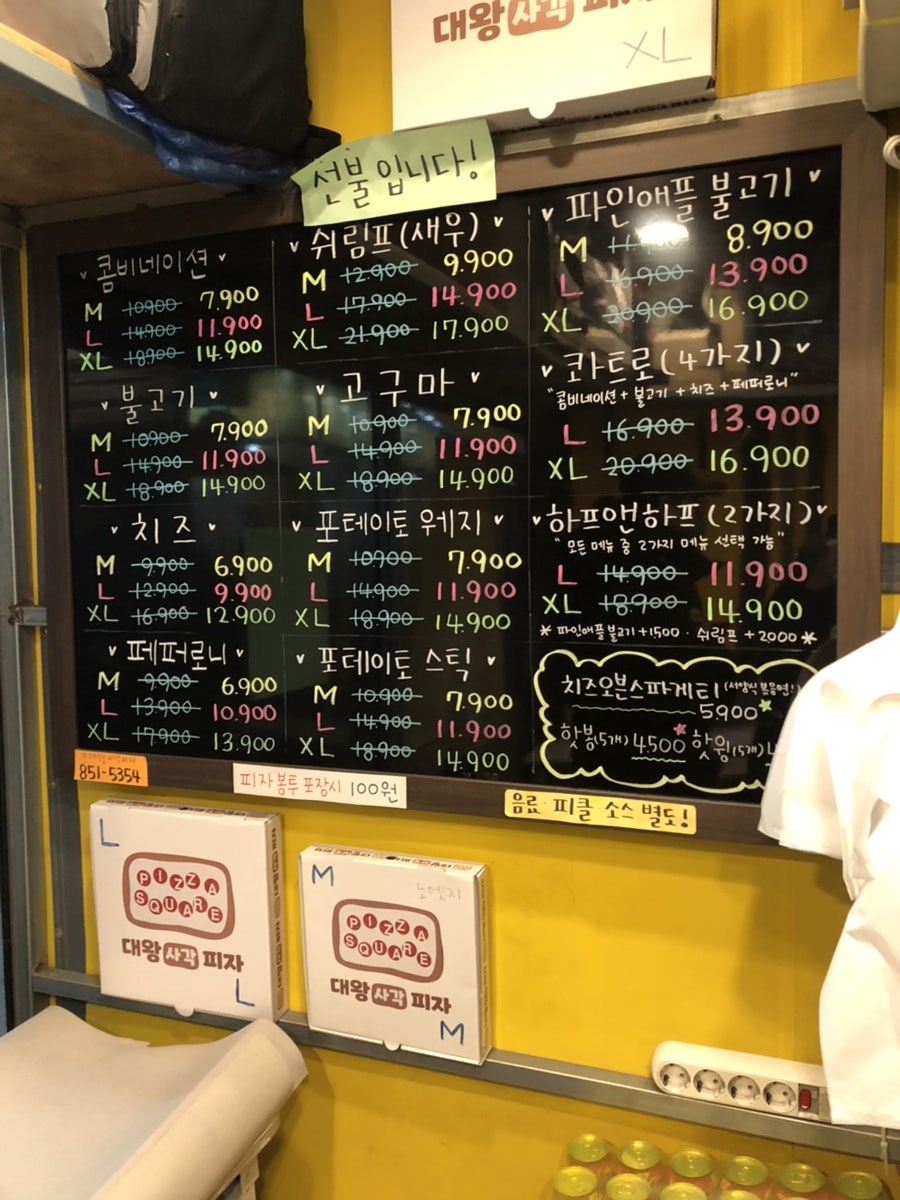 대왕 사각 피자
XL
선불입니다!
콤비네이션
M 10.900 7.900
L 14.900 11.900
XL 18.900 14.900
불고기
M 10.900 7.900
L 14.900 11.900
XL 18.900 14.900
치즈
M 9.900 6.900
L 12.900 9.900
XL 16.900 12.900
페퍼로니
M 9.900 6.900
L 13.900 10.900
XL 17.900 13.900
쉬림프(새우)
M 12.900 9.900
L 17.900 14.900
XL 21.900 17.900
고구마
M 10.900 7.900
L 14.900 11.900
XL 18.900 14.900
포테이토 웨지
M 10.900 7.900
L 14.900 11.900
XL 18.900 14.900
포테이토 스틱
M 10.900 7.900
L 14.900 11.900
XL 18.900 14.900
파인애플 불고기
M 8.900
L 16.900 13.900
XL 20.900 16.900
콰트로(4가지)
"콤비네이션+불고기+치즈+페퍼로니"
L 16.900 13.900
XL 20.900 16.900
하프앤하프(2가지)
"모든 메뉴 중 2가지 메뉴 선택 가능"
L 14.900 11.900
XL 18.900 14.900
*파인애플불고기+1500 · 쉬림프+2,000*
치즈오븐스파게티(서양식 볶음면!)
5.900
핫봉(5개) 4500 핫윙(5개)
851-5354
피자 봉투 포장시 100원
음료·피클 소스 별도!
L
PIZZA
SQUARE
대왕 사각 피자
L
M
노엣지
PIZZA
SQUARE
대왕 사각 피자
M